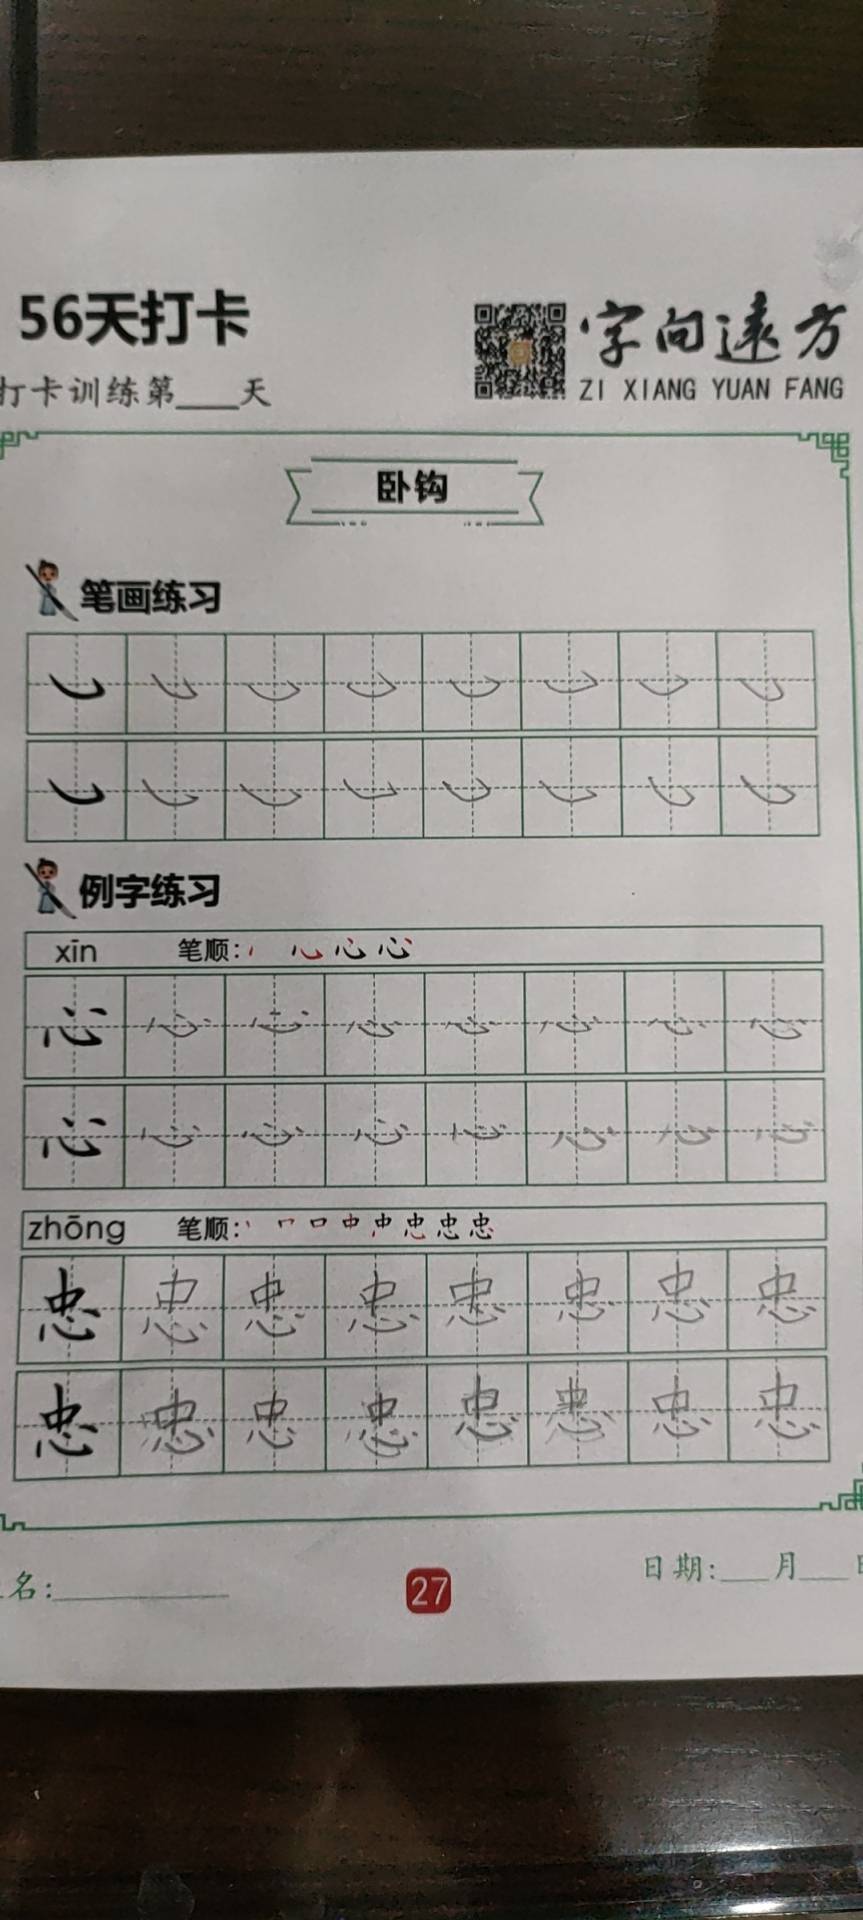 56天打卡
字向遠方
打卡训练第___天
ZI XIANG YUAN FANG
卧钩
笔画练习
例字练习
xīn 笔顺:
心 心 心 心 心 心 心 心
心 心 心 心 心 心 心 心
zhōng 笔顺:
忠 忠 忠 忠 忠 忠 忠 忠
忠 忠 忠 忠 忠 忠 忠 忠
名:___________
27
日期:___月___日